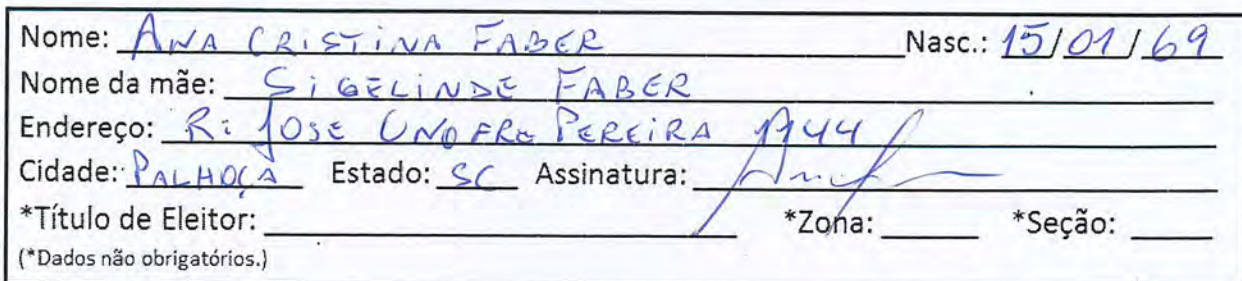 Nome: ANA CRISTINA FABER Nasc.: 15/01/69
Nome da mãe: SIGELINDE FABER
Endereço: R: JOSE UNOFRE PEREIRA 1744
Cidade: PALHOÇA Estado: SC Assinatura:
*Título de Eleitor: *Zona: *Seção:
(*Dados não obrigatórios.)